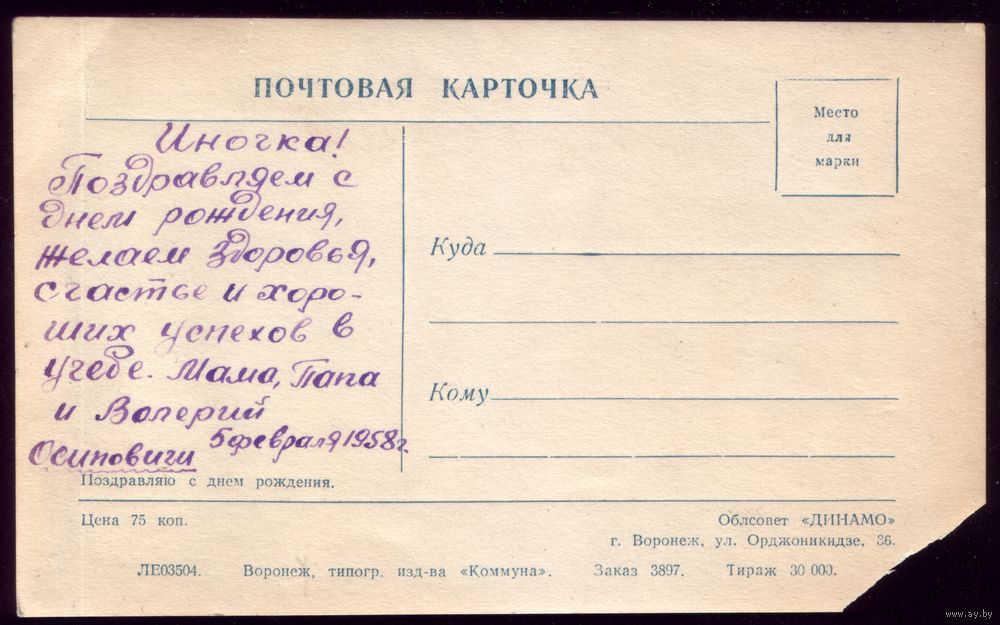 ПОЧТОВАЯ КАРТОЧКА
Место
для
марки
Иночка!
Поздравляем с
днем рождения,
желаем здоровья,
счастье и хоро-
ших успехов в
учебе. Мама, Папа
и Валерий
5 февраля 1958 г.
Осиповичи
Куда
Кому
Поздравляю с днем рождения.
Цена 75 коп.
Облсовет «ДИНАМО»
г. Воронеж, ул. Орджоникидзе, 36.
ЛЕ03504. Воронеж, типогр. изд-ва «Коммуна». Заказ 3897. Тираж 30 000.
www.ay.by